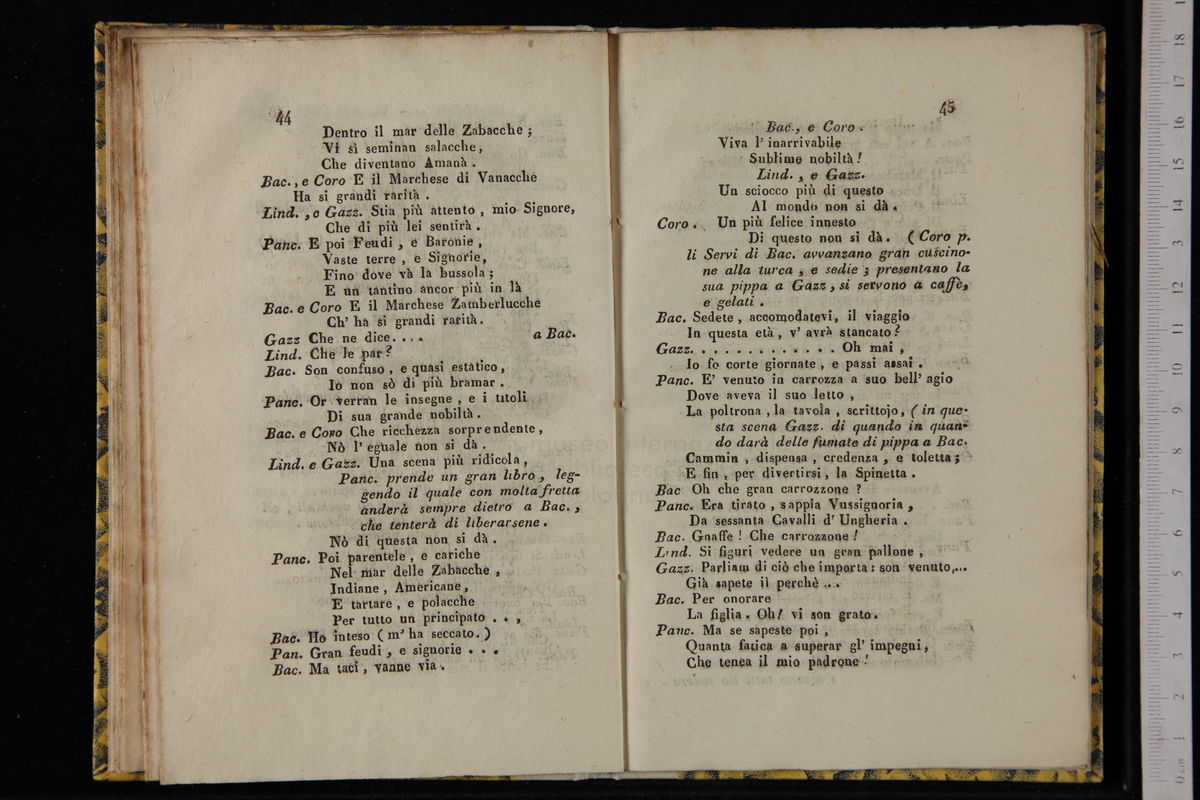 44
Dentro il mar delle Zabacche ;
Vi si seminan salacche,
Che diventano Amanà .
Bac. , e Coro E il Marchese di Vanacche
Ha si grandi rarità .
Lind. , e Gazz. Stia più attento , mio Signore,
Che di più lei sentirà .
Panc. E poi Feudi , e Baronie ,
Vaste terre , e Signorie,
Fino dove và la bussola ;
E un tantino ancor più in là
Bac. e Coro E il Marchese Zamberlucche
Ch' ha si grandi rarità.
Gazz Che ne dice. . . . a Bac.
Lind. Che le par ?
Bac. Son confuso , e quasi estatico ,
Io non sò di più bramar .
Panc. Or verran le insegne , e i titoli
Di sua grande nobiltà .
Bac. e Coro Che ricchezza sorprendente,
Nò l' eguale non si dà .
Lind. e Gazz. Una scena più ridicola ,
Panc. prende un gran libro , leg-
gendo il quale con molta fretta
anderà sempre dietro a Bac. ,
che tenterà di liberarsene .
Nò di questa non si dà .
Panc. Poi parentele , e cariche
Nel mar delle Zabacche ,
Indiane , Americane ,
E tartare , e polacche
Per tutto un principato . . ,
Bac. Ho inteso ( m' ha seccato. )
Pan. Gran feudi , e signorie . . .
Bac. Ma taci , vanne via .
45
Bac. , e Coro .
Viva l' inarrivabile
Sublime nobiltà !
Lind. , e Gazz.
Un sciocco più di questo
Al mondo non si dà .
Coro . Un più felice innesto
Di questo non si dà . ( Coro p.
li Servi di Bac. avvanzano gran cuscino-
ne alla turca , e sedie ; presentano la
sua pippa a Gazz , si servono a caffè,
e gelati .
Bac. Sedete , accomodatevi, il viaggio
In questa età , v' avrà stancato ?
Gazz. . . . . . . . . . . . . Oh mai ,
Io fo corte giornate , e passi assai .
Panc. E' venuto in carrozza a suo bell' agio
Dove aveva il suo letto ,
La poltrona , la tavola , scrittojo, ( in que-
sta scena Gazz. di quando in quan-
do darà delle fumate di pippa a Bac.
Cammin , dispensa , credenza , e toletta ;
E fin , per divertirsi, la Spinetta .
Bac Oh che gran carrozzone ?
Panc. Era tirato , sappia Vussignoria ,
Da sessanta Cavalli d' Ungheria .
Bac. Gnaffe ! Che carrozzone !
Lind. Si figuri vedere un gran pallone ,
Gazz. Parliam di ciò che importa : son venuto,...
Già sapete il perchè ...
Bac. Per onorare
La figlia . Oh! vi son grato .
Panc. Ma se sapeste poi ,
Quanta fatica a superar gl' impegni,
Che tenea il mio padrone !